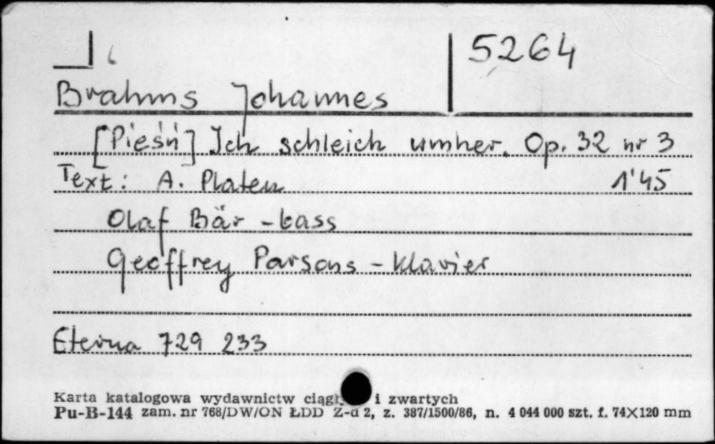 5264
Brahms Johannes
[Pieśń] Ich schleich umher. Op. 32 nr 3
Text: A. Platen 1'45
Olaf Bär - bass
Geoffrey Parsons - Klavier
Eterna 729 233
Karta katalogowa wydawnictw i zwartych
Pu-B-144 zam. nr 768/DW/ON ŁDD Z-d 2, z. 387/1500/86, n. 4 044 000 szt. f. 74×120 mm